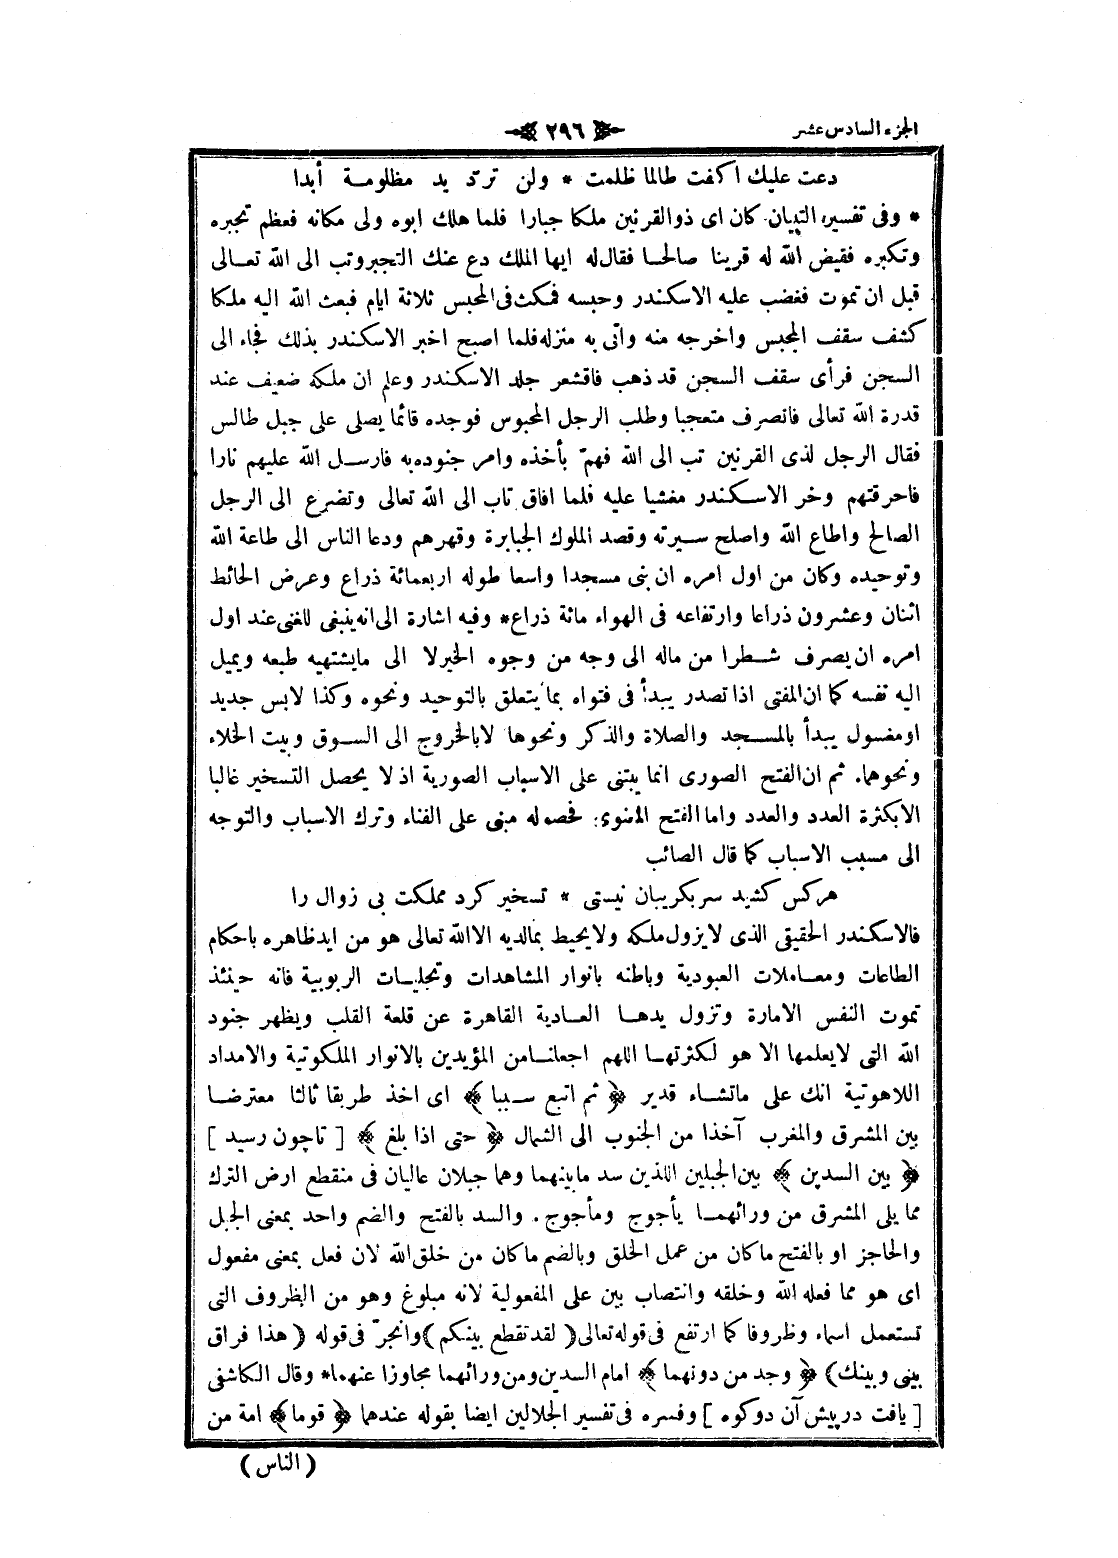 الجزء السادس عشر
٢٩٦
دعت عليك اكفت طالما ظلمت * ولن تردّ يد مظلومة أبدا
* وفى تفسير التبيان كان اى ذوالقرنين ملكا جبارا فلما هلك ابوه ولى مكانه فعظم تجبره
وتكبره فقيض الله له قرينا صالحا فقال له ايها الملك دع عنك التجبر وتب الى الله تعالى
قبل ان تموت فغضب عليه الاسكندر وحبسه فمكث فى المحبس ثلاثة ايام فبعث الله اليه ملكا
كشف سقف المحبس واخرجه منه واتى به منزله فلما اصبح اخبر الاسكندر بذلك فجاء الى
السجن فرأى سقف السجن قد ذهب فاقشعر جلد الاسكندر وعلم ان ملكه ضعيف عند
قدرة الله تعالى فانصرف متعجبا وطلب الرجل المحبوس فوجده قائما يصلى على جبل طالس
فقال الرجل لذى القرنين تب الى الله فهمّ بأخذه وامر جنوده به فارسل الله عليهم نارا
فاحرقتهم وخر الاسكندر مغشيا عليه فلما افاق تاب الى الله تعالى وتضرع الى الرجل
الصالح واطاع الله واصلح سيرته وقصد الملوك الجبابرة وقهرهم ودعا الناس الى طاعة الله
وتوحيده وكان من اول امره ان بنى مسجدا واسعا طوله اربعمائة ذراع وعرض الحائط
اثنان وعشرون ذراعا وارتفاعه فى الهواء مائة ذراع * وفيه اشارة الى انه ينبغى للغنى عند اول
امره ان يصرف شطرا من ماله الى وجه من وجوه الخير لا الى مايشتهيه طبعه ويميل
اليه نفسه كما ان المفتى اذا تصدر يبدأ فى فتواه بما يتعلق بالتوحيد ونحوه وكذا لابس جديد
اومغسول يبدأ بالمسجد والصلاة والذكر ونحوها لا بالخروج الى السوق وبيت الخلاء
ونحوهما. ثم ان الفتح الصورى انما يبتنى على الاسباب الصورية اذ لا يحصل التسخير غالبا
الا بكثرة العدد والعدد واما الفتح المعنوى فحصوله مبنى على الفناء وترك الاسباب والتوجه
الى مسبب الاسباب كما قال الصائب
هركس كشيد سر بكريبان نيستى * تسخير كرد مملكت بى زوال را
فالاسكندر الحقيقى الذى لا يزول ملكه ولا يحيط بمالديه الا الله تعالى هو من ايد ظاهره باحكام
الطاعات ومعاملات العبودية وباطنه بانوار المشاهدات وتجليات الربوبية فانه حينئذ
تموت النفس الامارة وتزول يدها العادية القاهرة عن قلعة القلب ويظهر جنود
الله التى لا يعلمها الا هو لكثرتها اللهم اجعلنا من المؤيدين بالانوار الملكوتية والامداد
اللاهوتية انك على ماتشاء قدير ﴿ ثم اتبع سببا ﴾ اى اخذ طريقا ثالثا معترضا
بين المشرق والمغرب آخذا من الجنوب الى الشمال ﴿ حتى اذا بلغ ﴾ [ تاچون رسيد ]
﴿ بين السدين ﴾ بين الجبلين اللذين سد مابينهما وهما جبلان عاليان فى منقطع ارض الترك
مما يلى المشرق من ورائهما يأجوج ومأجوج . والسد بالفتح والضم واحد بمعنى الجبل
والحاجز او بالفتح ماكان من عمل الخلق وبالضم ماكان من خلق الله لان فعل بمعنى مفعول
اى هو مما فعله الله وخلقه وانتصاب بين على المفعولية لانه مبلوغ وهو من الظروف التى
تستعمل اسماء وظروفا كما ارتفع فى قوله تعالى ( لقد تقطع بينكم ) وانجرّ فى قوله ( هذا فراق
بينى وبينك ) ﴿ وجد من دونهما ﴾ امام السدين ومن ورائهما مجاوزا عنهما * وقال الكاشفى
[ يافت در پيش آن دو كوه ] وفسره فى تفسير الجلالين ايضا بقوله عندهما ﴿ قوما ﴾ امة من
( الناس )